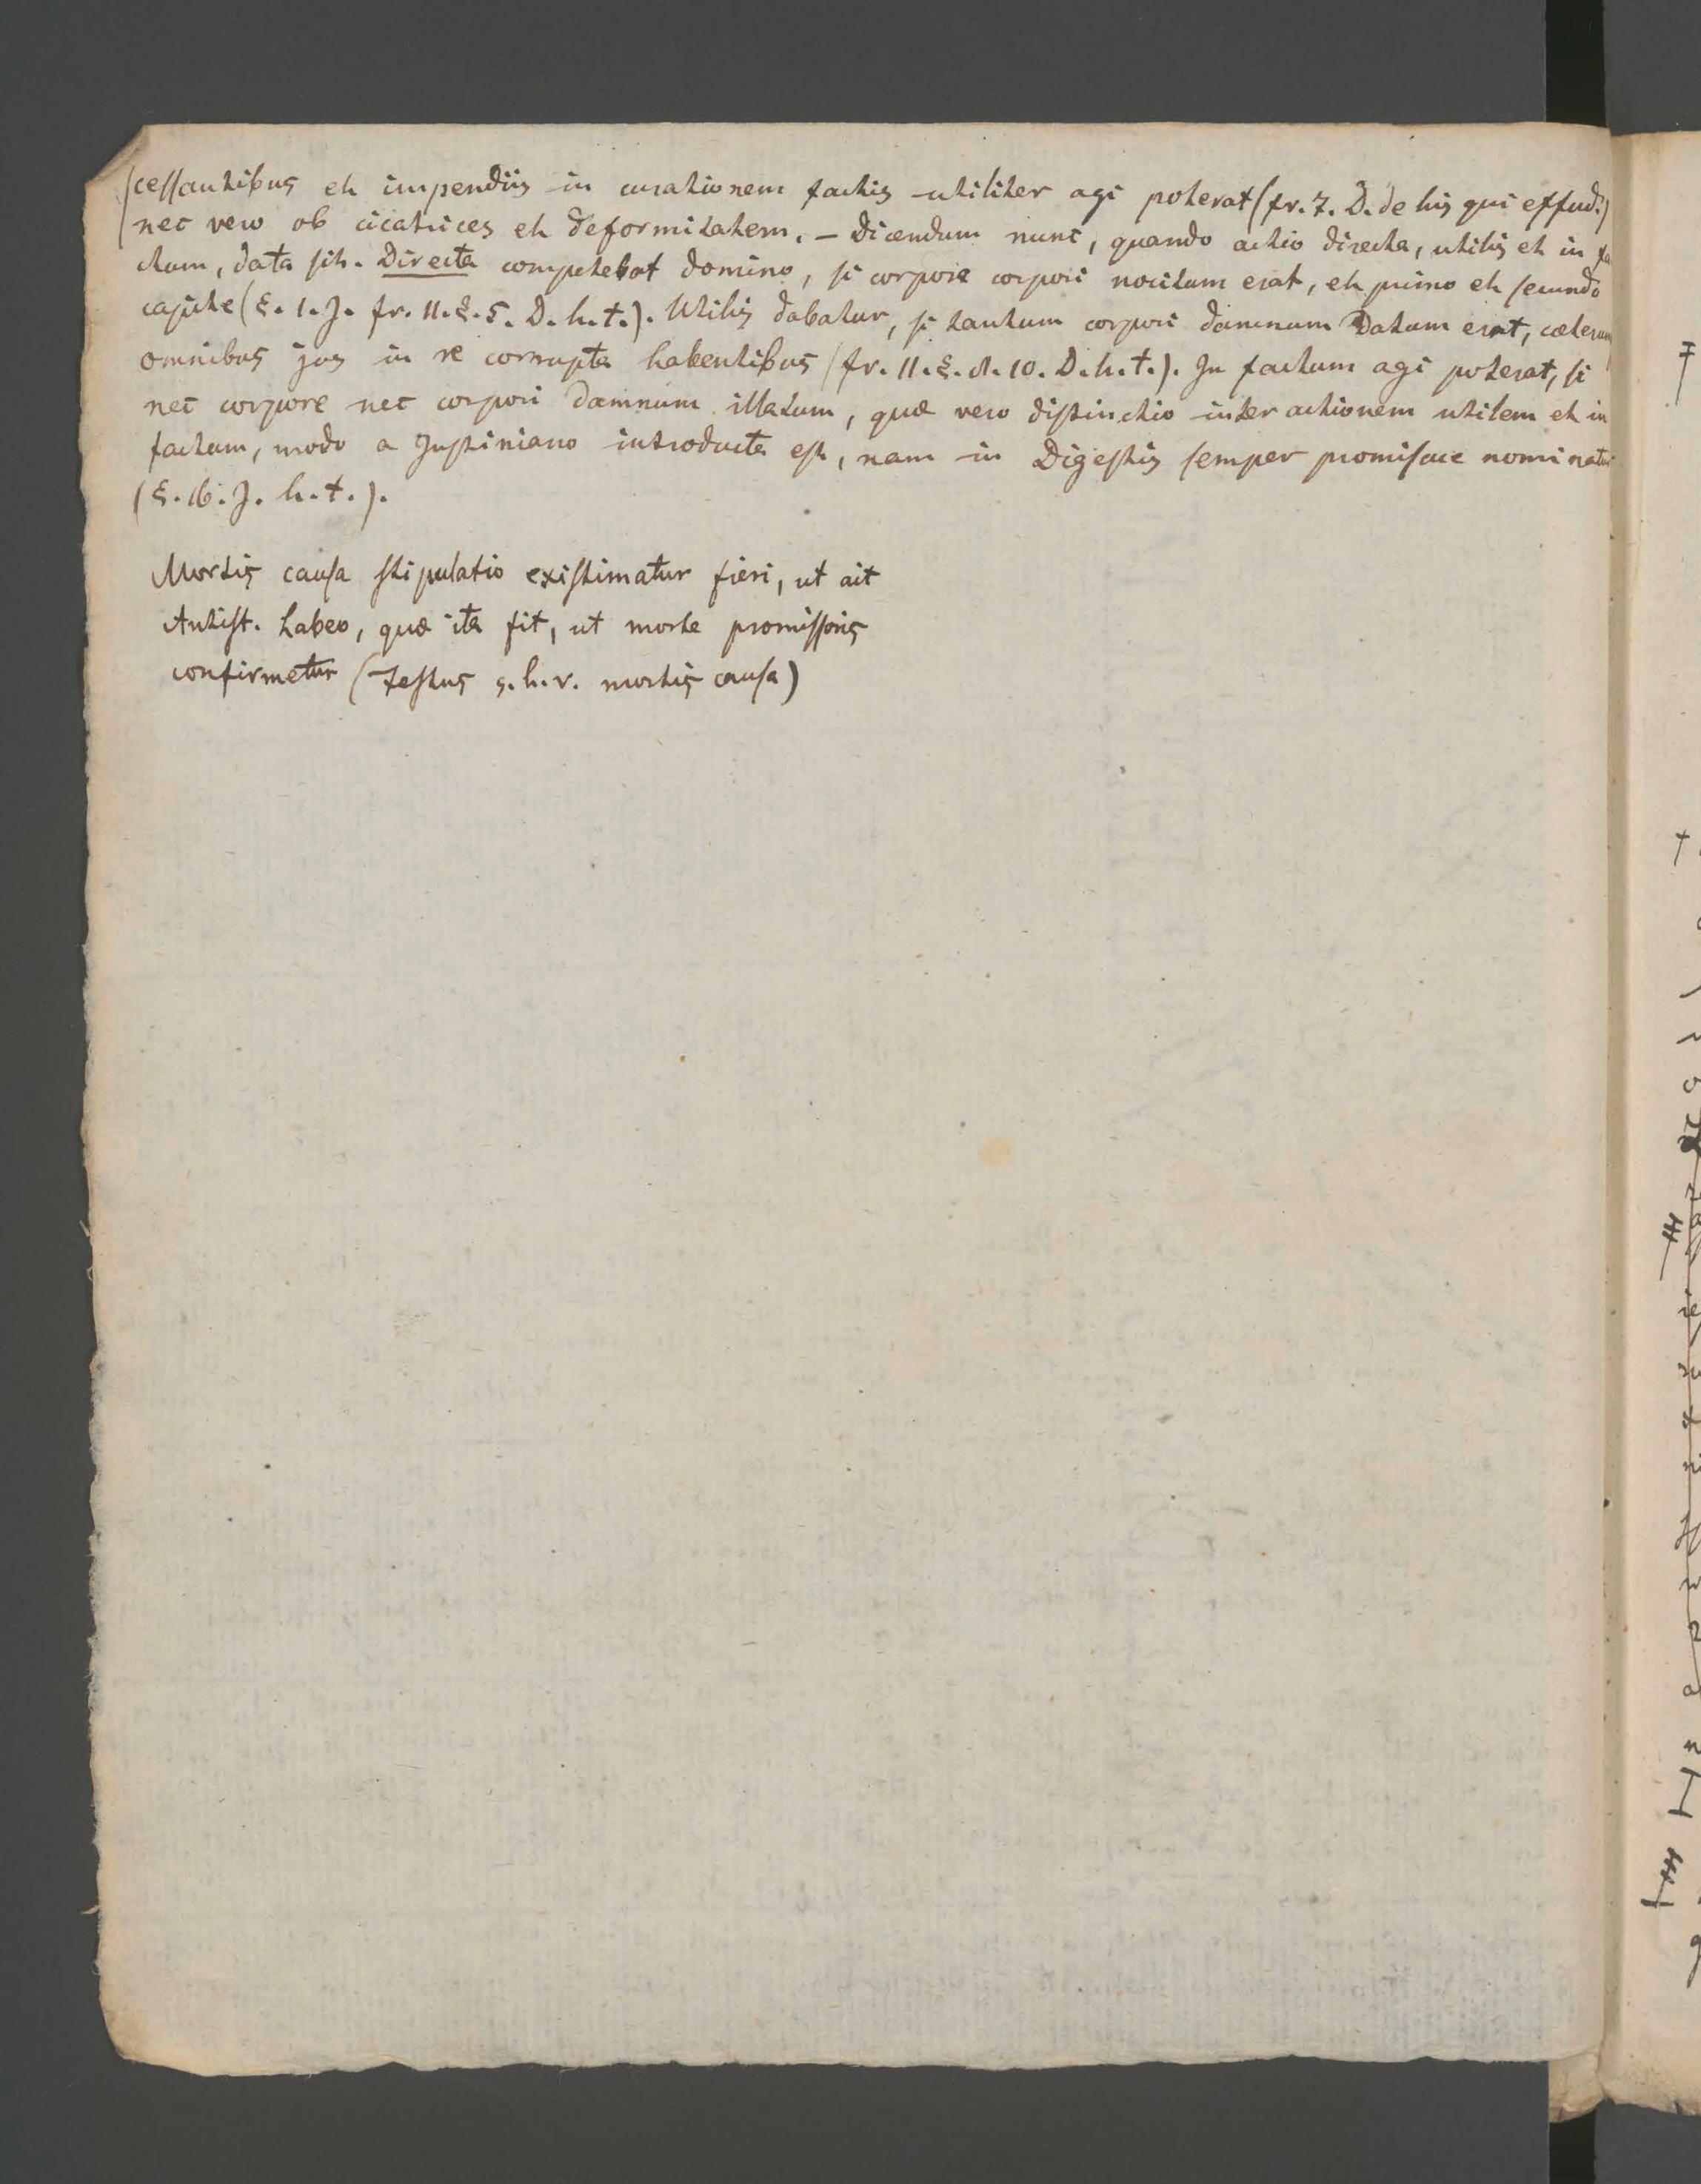 cessantibus et impendiis in curationem factis utiliter agi poterat (fr. 7. D. de his qui effud.)
nec vero ob cicatrices et deformitatem. – Dicendum nunc, quando actio directa, utilis et in fa
ctum, data sit. Directa competebat domino, si corpore corpori nocitum erat, et primo et secundo
capite (§. 1. J. fr. 11. §. 5. D. h. t.). Utilis dabatur, si tantum corpori damnum datum erat, cæterum
omnibus jus in re corrupta habentibus (fr. 11. §. 10. D. h. t.). In factum agi poterat, si
nec corpore nec corpori damnum illatum, quæ vero distinctio inter actionem utilem et in
factum, modo a Justiniano introducta est, nam in Digestis semper promiscue nominatur
(§. 16. J. h. t.).
Mortis causa stipulatio existimatur fieri, ut ait
Antist. Labeo, quæ ita fit, ut morte promissoris
confirmetur (Festus s. h. v. mortis causa)